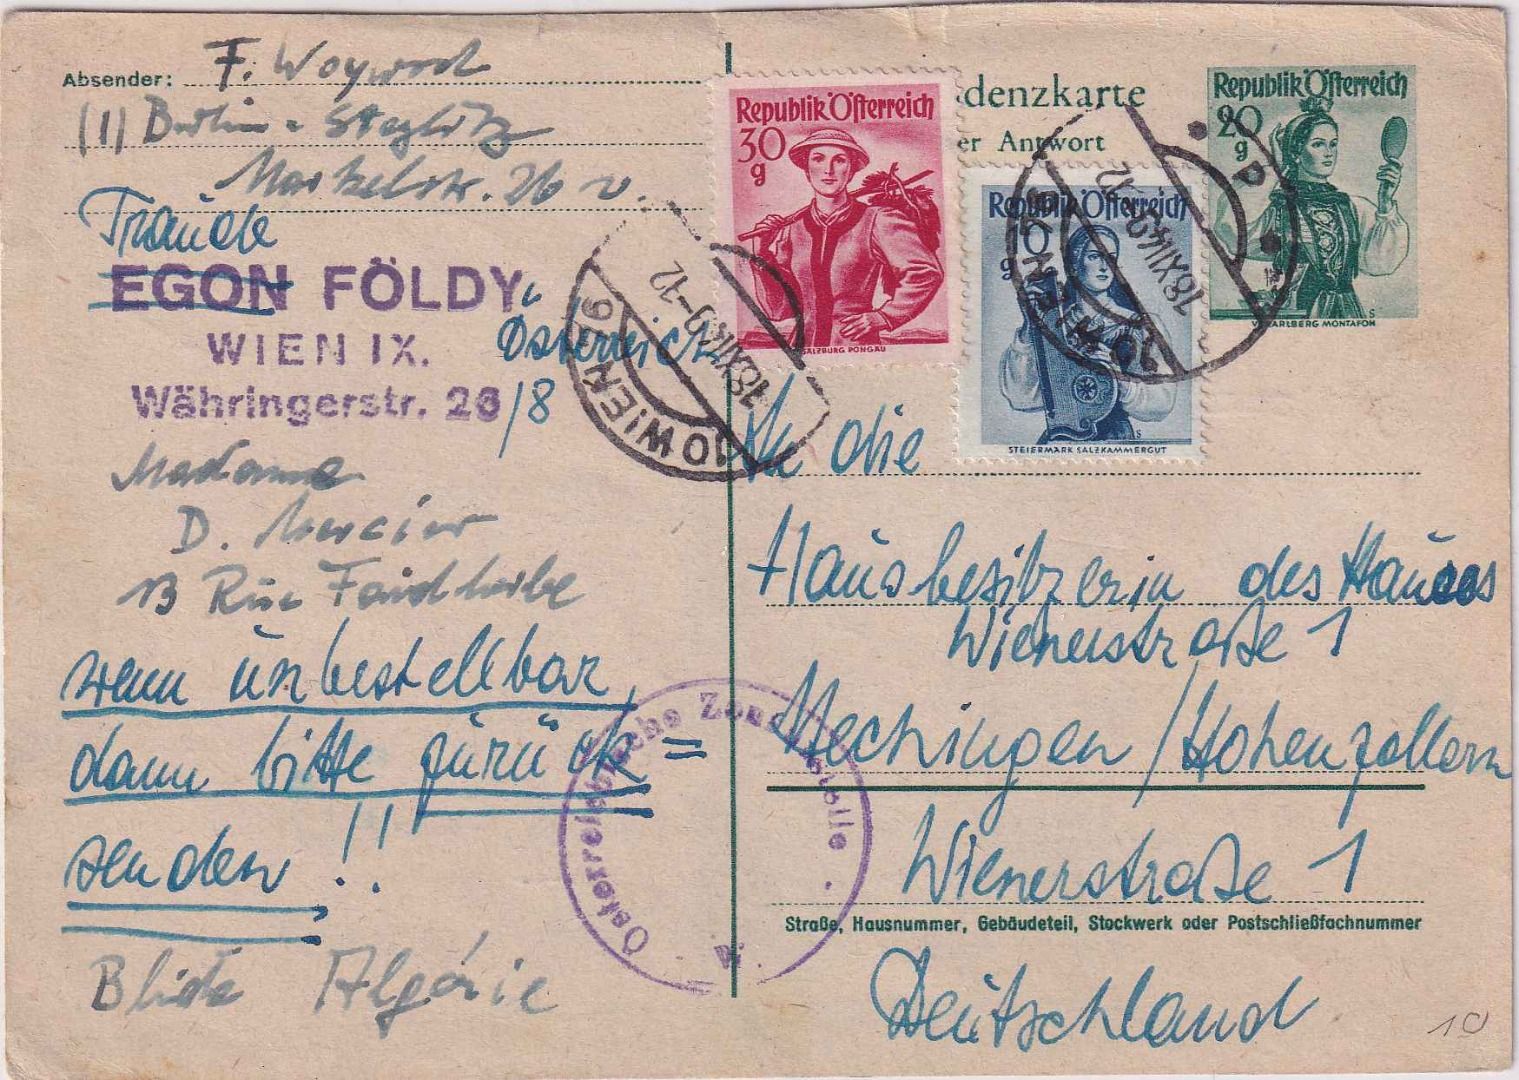 Absender: F. Woywod
(1) Berlin-Steglitz
Markelstr. 26 v.
Traude
EGON FÖLDY,
WIEN IX.
Österreich
Währingerstr. 26/8
Madame
D. Mercier
13 Rue Faidherbe
wenn unbestellbar,
dann bitte zurück=
senden!!
Blida Algérie
denzkarte
er Antwort
Republik Österreich
30 g
SALZBURG PONGAU
Republik Österreich
10 g
STEIERMARK SALZKAMMERGUT
Republik Österreich
20 g
VORARLBERG MONTAFON
10 WIEN 56
18.XII.49-12
10 WIEN 56
18.XII.49-12
An die
Hausbesitzerin des Hauses
Wienerstraße 1
Mechingen/Hohenzollern
Wienerstraße 1
Straße, Hausnummer, Gebäudeteil, Stockwerk oder Postschließfachnummer
Deutschland
Österreichische Zensurstelle
10